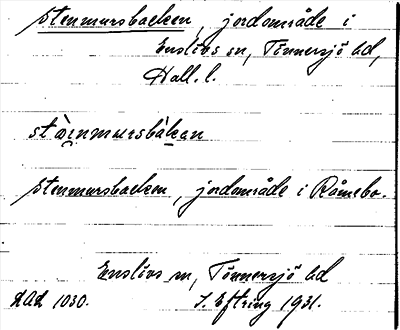 Stenmursbacken, jordområde i
Enslövs sn, Tönnersjö hd,
Hall. l.
stæ̀inmursbàkan
Stenmursbacken, jordområde i Råmebo.
Enslövs sn, Tönnersjö hd
DAL 1030. S. Eftring 1931.